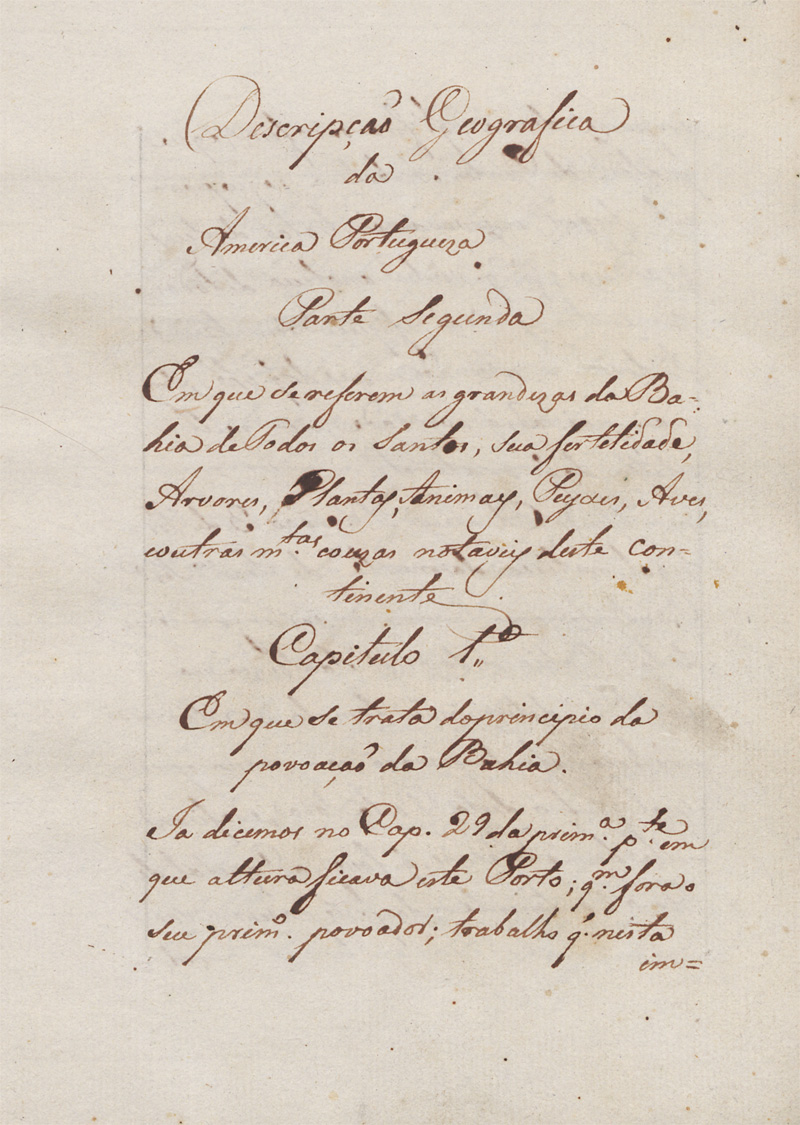 Descripçaõ Geografica
da
America Portugueza
Parte Segunda
Em que se referem as grandezas da Ba-
hia de Todos os Santos, sua fertelidade,
Arvores, Plantas, Animays, Peyxes, Aves,
e outras m.tas couzas notaveis deste con-
tinente
Capitulo 1.º
Em que se trata do principio da
povoaçaõ da Bahia.
Ja dicemos no Cap. 29 da prim.ª p.te em
que altura ficava este Porto; q.m fora o
seu prim.º povoador; trabalho q. nesta
em=